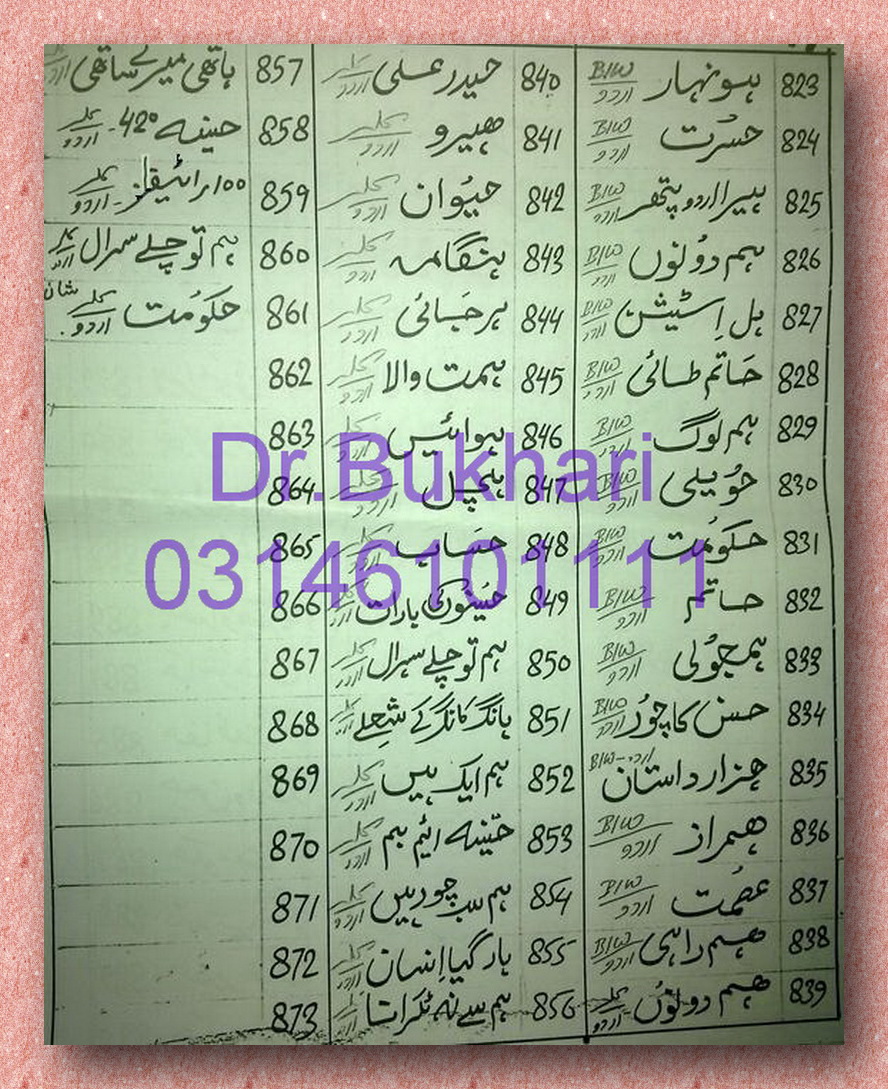 823 ہونہار B/W اردو
824 حسرت B/W اردو
825 ہیرا اور پتھر B/W اردو
826 ہم دونوں B/W اردو
827 ہل اسٹیشن B/W اردو
828 حاتم طائی B/W اردو
829 ہم لوگ B/W اردو
830 حویلی B/W اردو
831 حکومت B/W اردو
832 حاتم B/W اردو
833 ہمجولی B/W اردو
834 حسن کا چور B/W اردو
835 ہزار داستان B/W اردو
836 ہمراز B/W اردو
837 عصمت B/W اردو
838 ہم راہی B/W اردو
839 ہم دونوں کلر اردو
840 حیدر علی کلر اردو
841 ہیرو کلر اردو
842 حیوان کلر اردو
843 ہنگامہ کلر اردو
844 ہرجائی کلر اردو
845 ہمت والا کلر اردو
846 ہوائیں کلر اردو
847 ہلچل کلر اردو
848 حساب کلر اردو
849 حسینوں کی بارات کلر اردو
850 ہم تو چلے سسرال کلر اردو
851 ہانگ کانگ کے شعلے کلر اردو
852 ہم ایک ہیں کلر اردو
853 حسینہ ایٹم بم کلر اردو
854 ہم سب چور ہیں کلر اردو
855 ہار گیا انسان کلر اردو
856 ہم سے نہ ٹکرانا کلر اردو
857 ہاتھی میرے ساتھی کلر اردو
858 حسینہ 420 کلر اردو
859 100 رائیفلز کلر اردو
860 ہم تو چلے سسرال کلر اردو
861 حکومت کلر اردو شان
862
863
864
865
866
867
868
869
870
871
872
873
Dr.Bukhari
03146101111